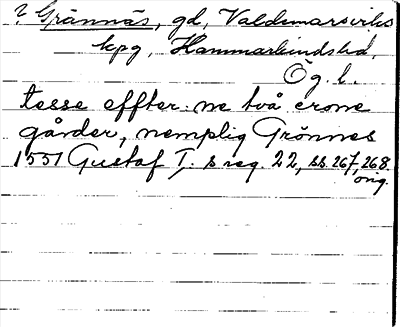 ? Grännäs, gd, Valdemarsviks
kpg, Hammarkinds hd,
Ög. l.
tesse effter: ne två crone
gårder, nemplig Grönnes
1551 Gustaf I:s reg. 22, ss. 267, 268.
orig.